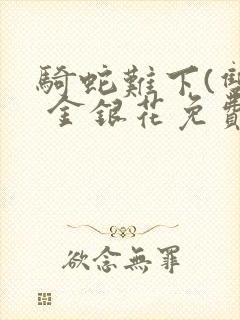 騎蛇難下(雙
金銀花免費
欲念無罪